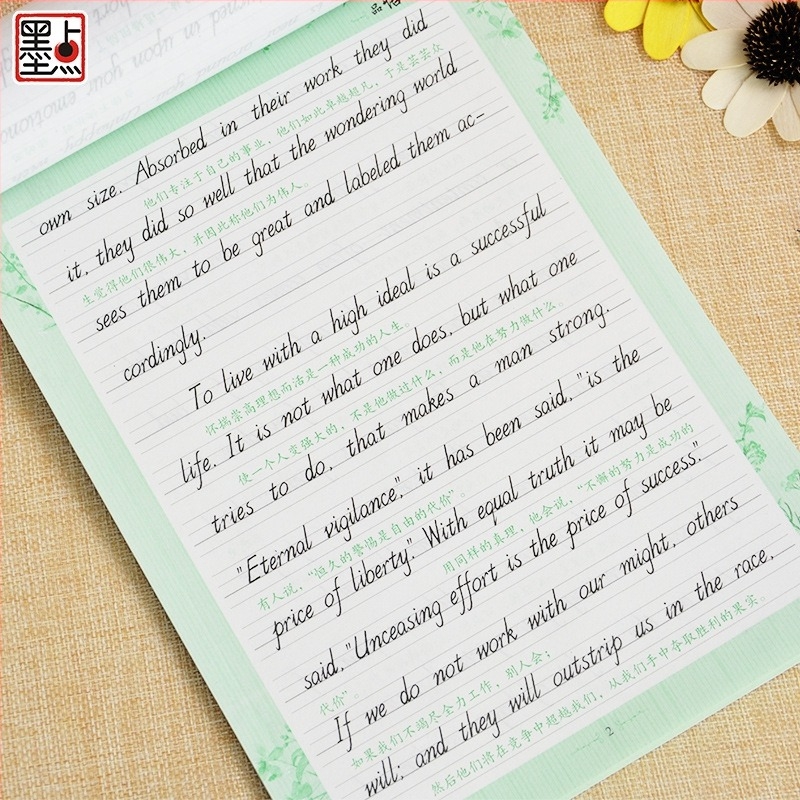 墨点
own size. Absorbed in their work they did
他们专注于自己的事业，他们如此卓越超凡，于是芸芸众
it, they did so well that the wondering world
生觉得他们很伟大，并因此称他们为伟人。
sees them to be great and labeled them ac-
cordingly.
To live with a high ideal is a successful
怀揣崇高理想而活是一种成功的人生。
life. It is not what one does, but what one
使一个人变强大的，不是他做过什么，而是他在努力做什么。
tries to do, that makes a man strong.
"Eternal vigilance," it has been said, "is the
有人说，“恒久的警惕是自由的代价”。
price of liberty". With equal truth it may be
用同样的真理，他会说，“不懈的努力是成功的
said, "Unceasing effort is the price of success".
代价”。
If we do not work with our might, others
如果我们不竭尽全力工作，别人会；
will; and they will outstrip us in the race,
然后他们将在竞争中超越我们，从我们手中夺取胜利的果实。
2